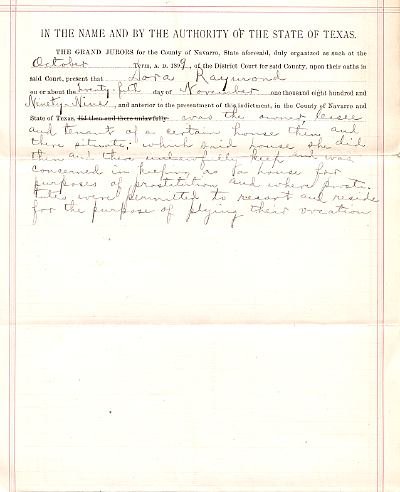 IN THE NAME AND BY THE AUTHORITY OF THE STATE OF TEXAS.
THE GRAND JURORS for the County of Navarro, State aforesaid, duly organized as such at the
October Term, A. D. 1899, of the District Court for said County, upon their oaths in
said Court, present that Dora Raymond
on or about the twenty fifth day of November one thousand eight hundred and
Ninety Nine, and anterior to the presentment of this indictment, in the County of Navarro and
State of Texas, did then and there unlawfully was the owner, lessee
and tenant of a certain house then and
there situate, which said house she did
then and there unlawfully keep and was
concerned in keeping as a house for
purposes of prostitution and where prosti-
tutes were permitted to resort and reside
for the purpose of plying their vocation